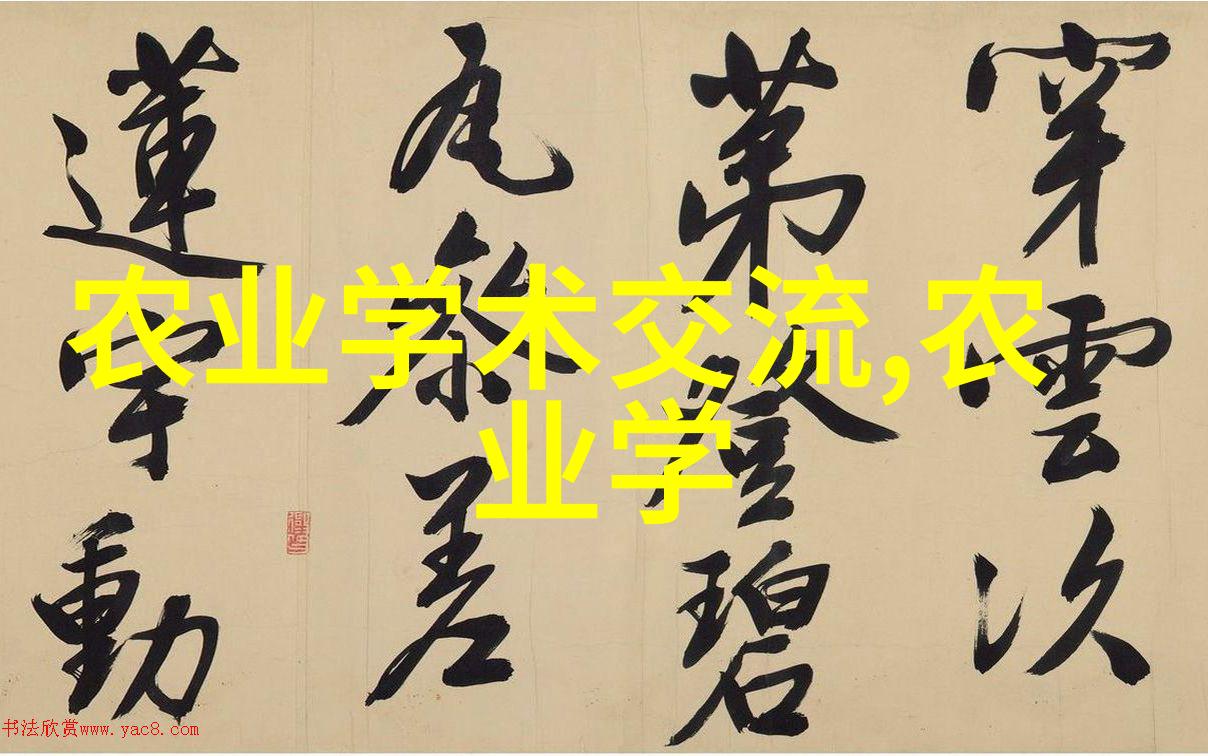 穿雲次
苐登碧
瓦叅差
蓮宇動
农业学术交流,农
业学
书法欣赏www.yac8.com